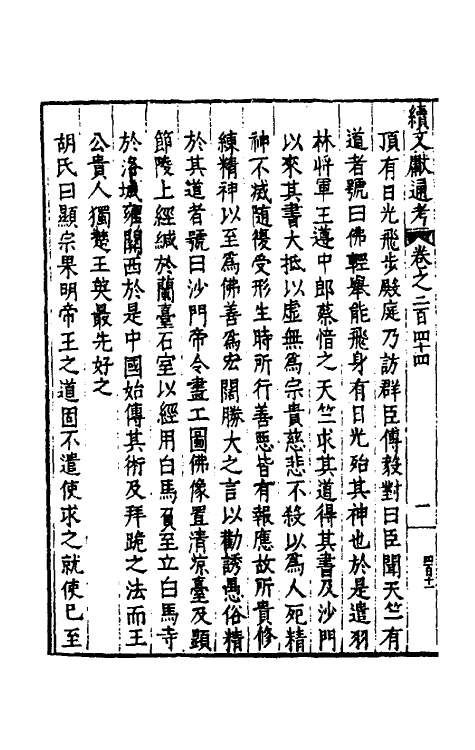 續文獻通考 卷之二百四十四 一
頂有日光飛步殿庭乃訪群臣傅毅對曰臣聞天竺有
道者號曰佛輕舉能飛身有日光殆其神也於是遣羽
林將軍王遵中郎蔡愔之天竺求其道得其書及沙門
以來其書大抵以虛無為宗貴慈悲不殺以為人死精
神不滅隨復受形生時所行善惡皆有報應故所貴修
練精神以至為佛善為宏闊勝大之言以勸誘愚俗精
於其道者號曰沙門帝令畫工圖佛像置清涼臺及顯
節陵上經緘於蘭臺石室以經用白馬負至立白馬寺
於洛城雍關西於是中國始傳其術及拜跪之法而王
公貴人獨楚王英最先好之
胡氏曰顯宗果明帝王之道固不遣使求之就使已至